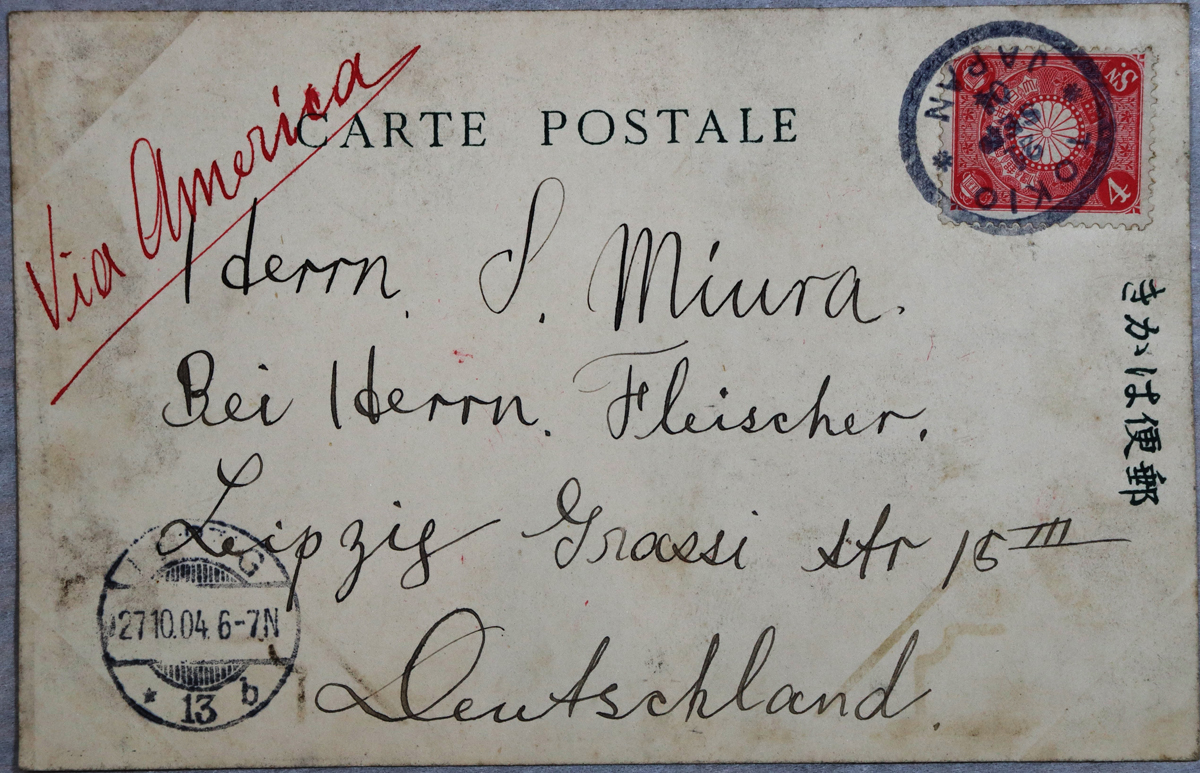 Via America
CARTE POSTALE
Herrn. S. Miura.
Bei Herrn. Fleischer.
Leipzig Grassi str 15 III
Deutschland.
きかは便郵
TOKIO
JAPAN
S.N
4
27.10.04. 6-7N
* 13 b